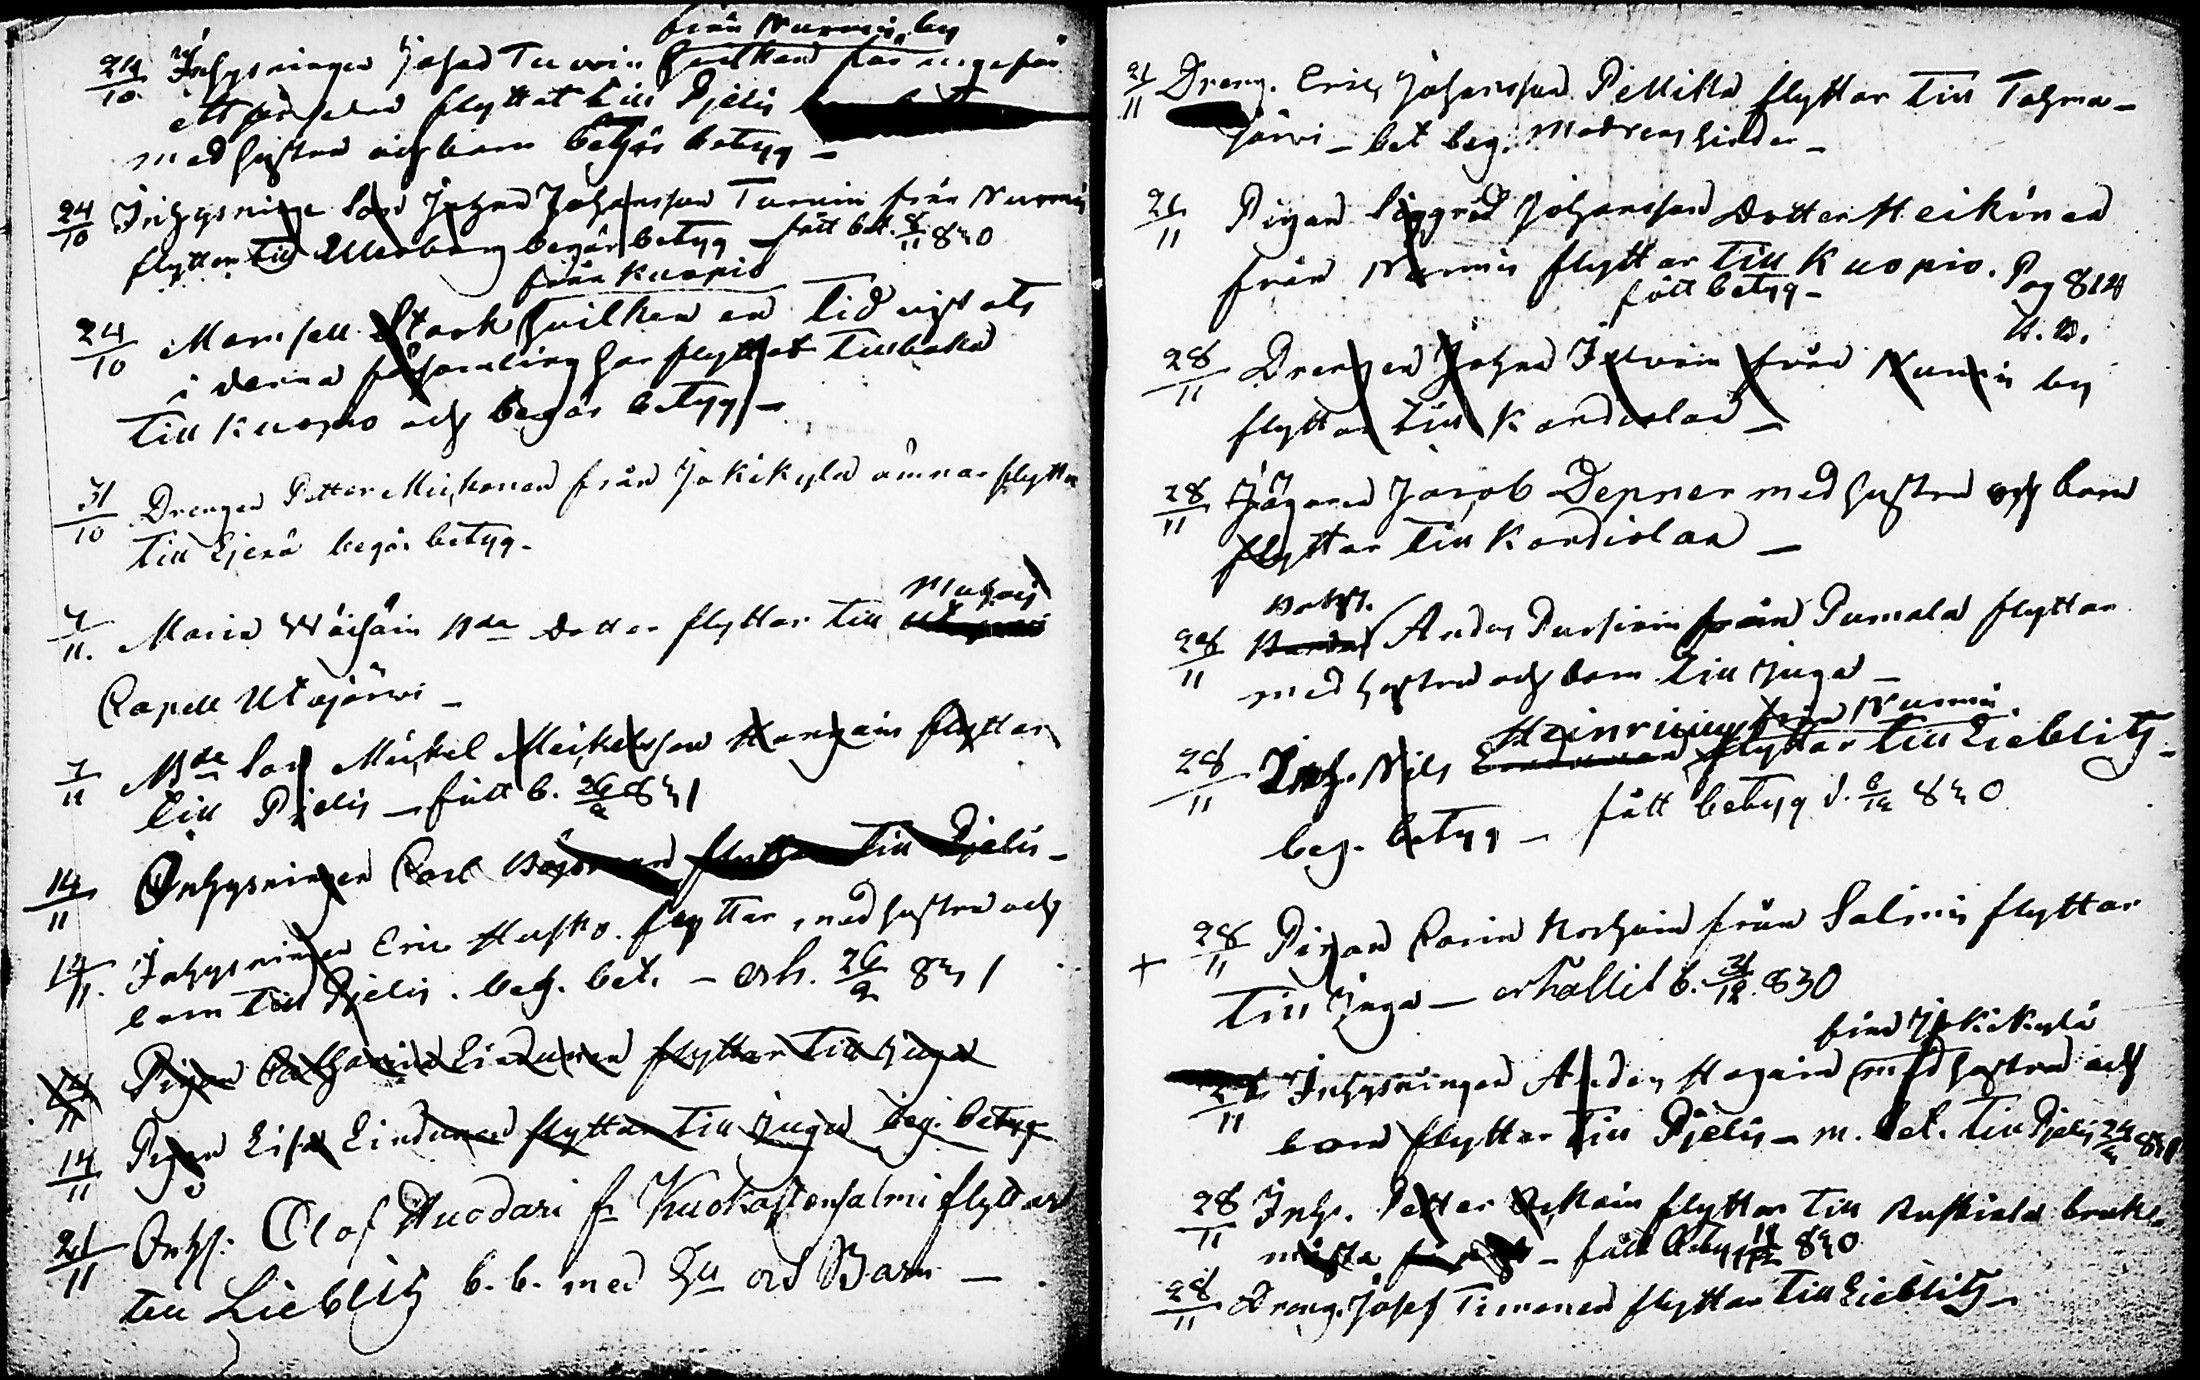 från Nurmis by
24/10 Inhysningen Johan Turuin hvilken för ungefär
ett år sedan flyttat till Pjelis
med hustru och barn begär betyg –
24/10 Inhysninge Son Johan Johansson Turuin från Nurmis
flyttar till Uleoborg begär betyg – fått bet. 8/11 830
från Kuopio
24/10 Mamsell Stark hvilken en tid vistats
i denna församling har flyttat tillbaka
till Kuopio och begär betyg –
31/10 Drengen Petter Michonen från Jokikylä ämnar flytta
till Ejenä begär betyg –
Muhos
7/11. Maria Wäisäin Bde Dotter flyttar till
Capell Utajärvi –
7/11 Bde Son Mickel Mickelsson Hongain flyttar
till Pjelis – fått b. 26/2 831
14/11 Inhysningen Carl flyttar till Pjelis –
14/11. Inhysningen Eric Husko flyttar med hustru och
barn till Pjelis. beg. bet. – erh. 26/2 831
14/11 Pigan Catharina Lindunen flyttar till Juga
14/11 Pigan Lisa Lindunen flyttar till Juga beg. betyg
21/11 Inhs: Olof Huodari fr Kuokastensalmi flyttar
till Lieblitz b. b. med Hu och Barn –
21/11 Dreng. Eric Johansson Pellikka flyttar till Tohma-
järvi – bet beg. Modrens hinder –
21/11 Pigan Siggrid Johansson Dotter Heikinen
från Nurmis flyttar till Kuopio. Pag 814
fått betyg –
28/11 Drengen Johan Ilvoin från Nurmis by
flyttar till Kondiolax –
28/11 Jägaren Jacob Depner med hustru och barn
flyttar till Kondiolax –
28/11 Anders Pursiain från Pumala flyttar
med hustru och barn till Juga –
Heinricius från Nurmis
28/11 Inh. Nils flyttar till Lieblitz –
beg. betyg – fått betyg d. 6/12 830
+ 28/11 Pigan Carin Korhoin från Salmis flyttar
till Juga – erhållit b. 31/12. 830
från Jokikylä
28/11 Inhysningen Anders Hagain med hustru och
barn flyttar till Pjelis – m. bet. till Pjelis 24/2 831
28/11 Inhs. Petter flyttar till Ruskiala bruk
– fått betyg 830
28/11 Dreng. Josef Timonen flyttar till Lieblitz –